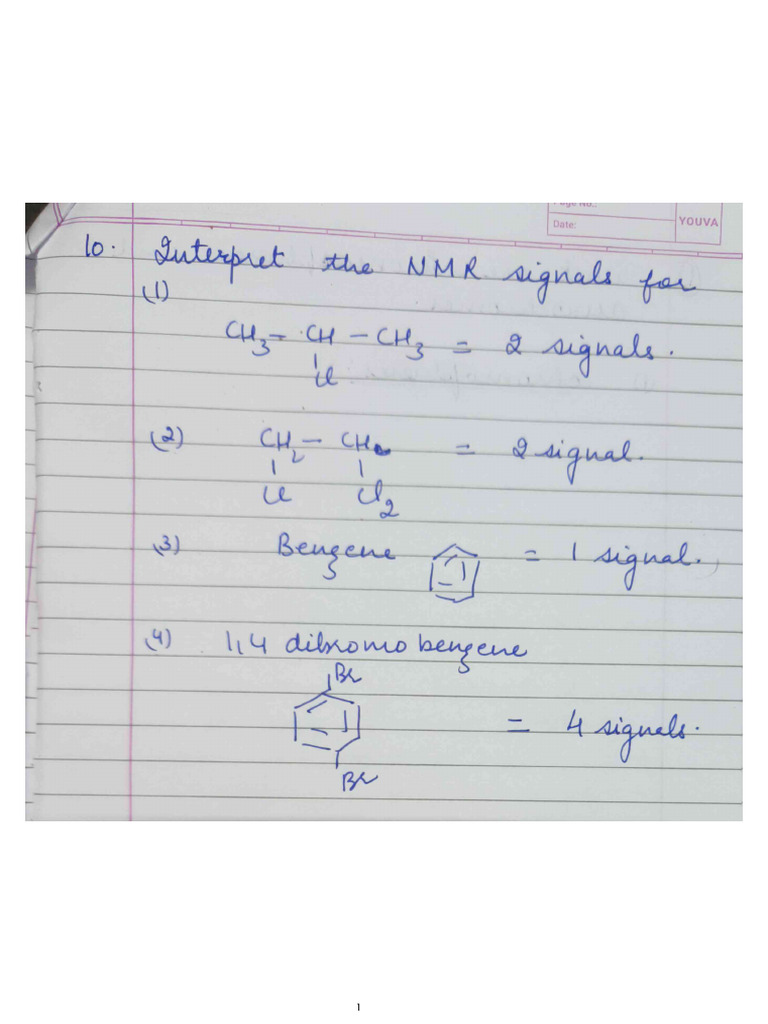 Page No.:
Date:
YOUVA
10. Interpret the NMR signals for
(1)
CH3 - CH - CH3 = 2 signals.
Cl
(2) CH2 - CH = 2 signal.
Cl Cl2
(3) Benzene = 1 signal.
(4) 1,4 dibromo benzene
Br
= 4 signals.
Br
1